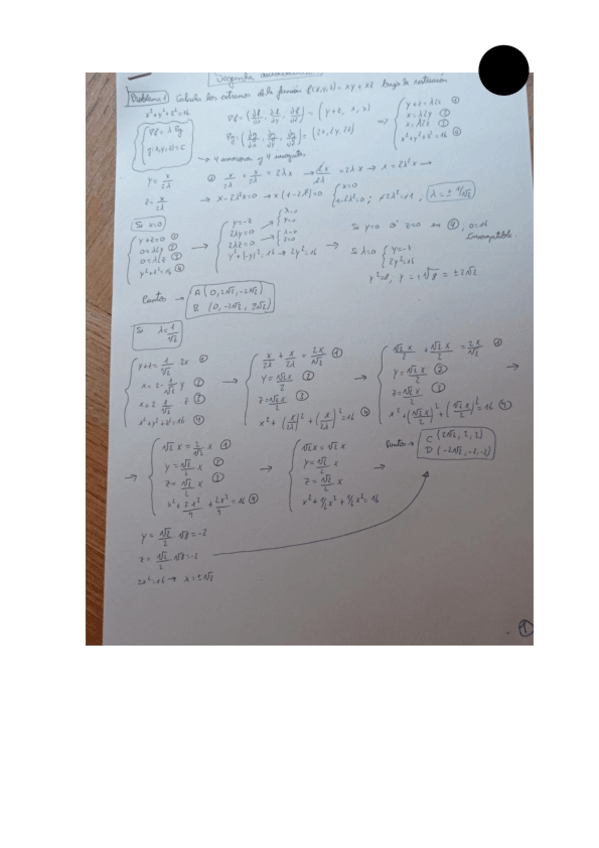 Segunda
Problema 1 Calcula los extremos de la función f(x,y,z) = xy + xz bajo la restricción
x²+y²+z²=16
∇f = λ∇g
g(x,y,z)=C
∇f = (∂f/∂x, ∂f/∂y, ∂f/∂z) = (y+z, x, x)
∇g = (∂g/∂x, ∂g/∂y, ∂g/∂z) = (2x, 2y, 2z)
=> y+z = λ2x ①
x = λ2y ②
x = λ2z ③
x²+y²+z²=16 ④
→ 4 ecuaciones y 4 incógnitas
y = x/2λ
z = x/2λ
① x/2λ + x/2λ = 2λx → 2x/2λ = 2λx → x = 2λ²x →
→ x - 2λ²x=0 → x(1-2λ²)=0
x=0
1-2λ²=0; λ = ± 1/√2
Si x=0
y+z=0 ①
0=λ2y ②
0=λ2z ③
y²+z²=16 ④
→ y=-z
2λy=0
2λz=0
y²+(-y)²=16 → 2y²=16
λ=0
y=0
λ=0
z=0
→ Si y=0 ó z=0 en ④, 0=16
Incompatible.
Si λ=0 y=-z
2y²=16
y²=8, y = ±√8 = ±2√2
Puntos → A (0, 2√2, -2√2)
B (0, -2√2, 2√2)
Si λ = 1/√2
y+z = 1/√2 2x ①
x = 2· 1/√2 y ②
x = 2· 1/√2 z ③
x²+y²+z²=16 ④
→ x/2λ + x/2λ = 2x/√2 ①
y = √2x/2 ②
z = √2x/2 ③
x² + (x/2λ)² + (x/2λ)² = 16 ④
→ √2x/2 + √2x/2 = 2x/√2 ①
y = √2x/2 ②
z = √2x/2 ③
x² + (√2x/2)² + (√2x/2)² = 16 ④
→
→ √2 x = 2/√2 x ①
y = √2/2 x ②
z = √2/2 x ③
x² + 2x²/4 + 2x²/4 = 16 ④
→ √2x = √2x
y = √2/2 x
z = √2/2 x
x² + 1/2x² + 1/2x² = 16
→ Puntos → C (2√2, 2, 2)
D (-2√2, -2, -2)
y = √2/2 √8 = -2
z = √2/2 √8 = -2
2x²=16 → x = ±√8
①